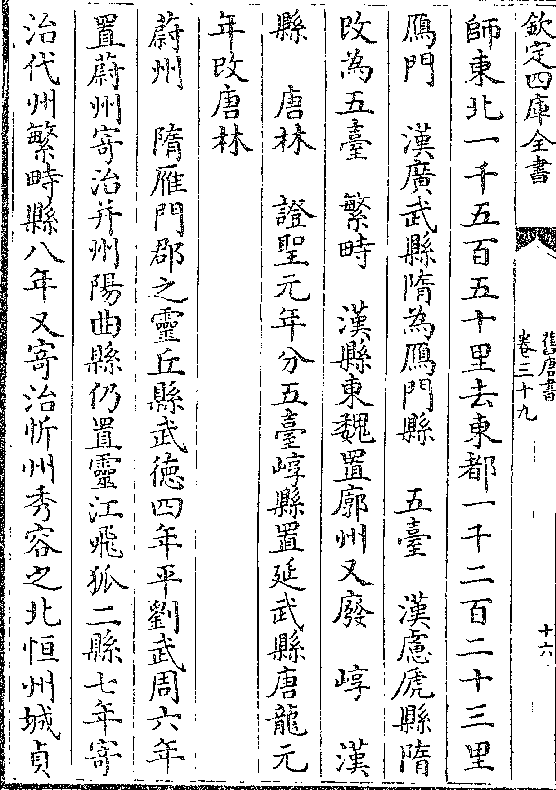 欽定四庫全書
舊唐書
卷三十九
十六
師東北一千五百五十里去東都一千二百二十三里
鴈門　漢廣武縣隋為鴈門縣　五臺　漢慮虒縣隋
改為五臺　繁畤　漢縣東魏置廓州又廢　崞　漢
縣　唐林　證聖元年分五臺崞縣置延武縣唐龍元
年改唐林
蔚州　隋雁門郡之靈丘縣武徳四年平劉武周六年
置蔚州寄治并州陽曲縣仍置靈江飛狐二縣七年寄
治代州繁畤縣八年又寄治忻州秀容之北恒州城貞